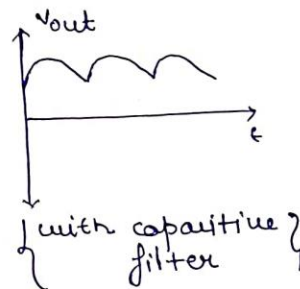 Vout
t
{with capacitive}
filter